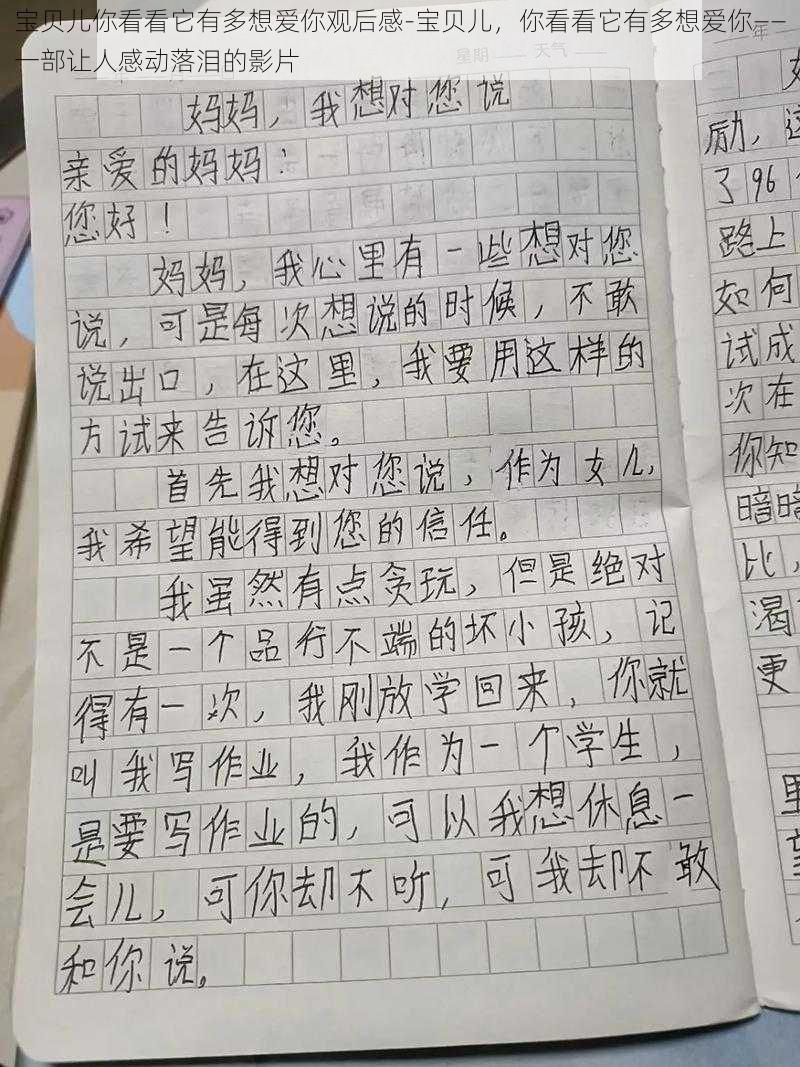 宝贝儿你看看它有多想爱你观后感-宝贝儿，你看看它有多想爱你——
一部让人感动落泪的影片
星期 天气
妈妈，我想对您说
亲爱的妈妈：
您好！
妈妈，我心里有一些想对您
说，可是每次想说的时候，不敢
说出口，在这里，我要用这样的
方试来告诉您。
首先我想对您说，作为女儿，
我希望能得到您的信任。
我虽然有点贪玩，但是绝对
不是一个品行不端的坏小孩，记
得有一次，我刚放学回来，你就
叫我写作业，我作为一个学生，
是要写作业的，可以我想休息一
会儿，可你却不听，可我却不敢
和你说。
年
励，这
了96
路上
如何
试成
次在
你知
暗暗
比，
渴
更
里
望